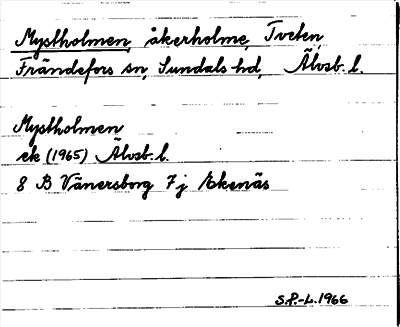 Mystholmen, åkerholme, Tveten,
Frändefors sn, Sundals hd, Älvsb. l.
Mystholmen
ek (1965) Älvsb. l.
8 B Vänersborg 7 j Ekenäs
S.P.-L. 1966